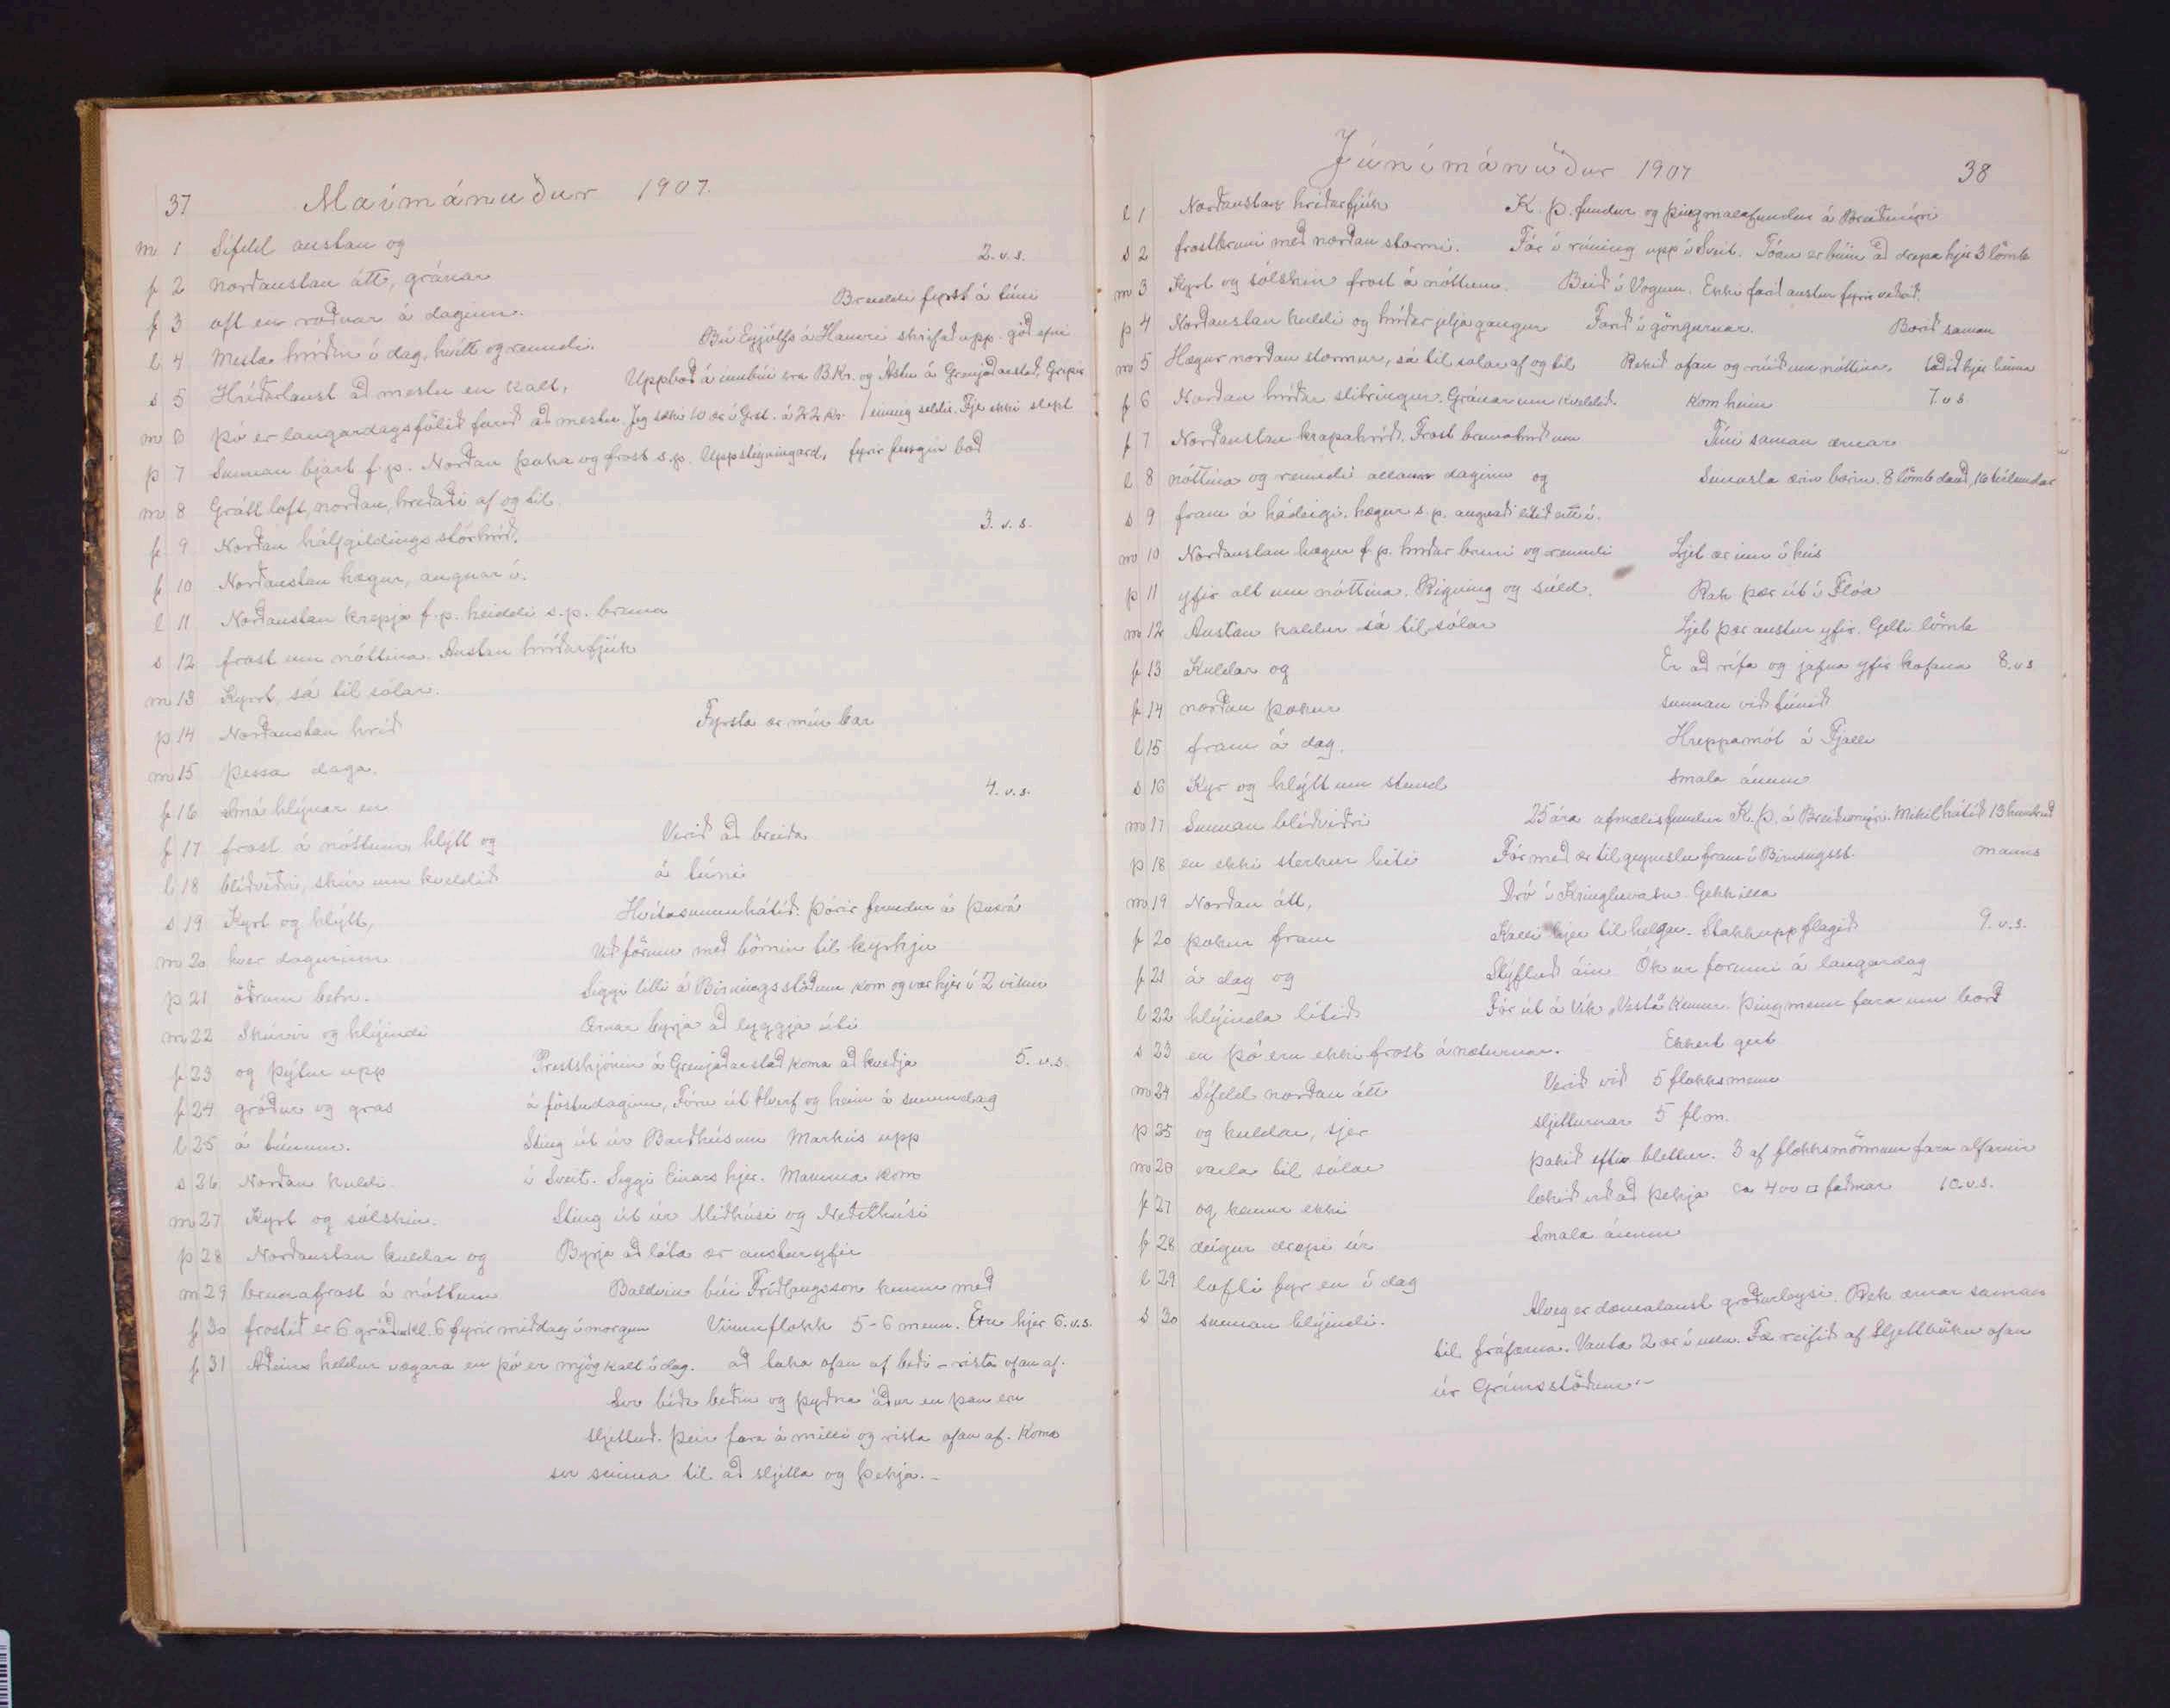 37 Maímánuður 1907.
m 1 Sífeld austan og 2. v. s.
þ 2 norðaustan átt, gránar
f 3 oft en roðnar á daginn. Breiddi fyrst á túni
l 4 Mesta hríðin í dag, hvítt og renndi. Bú Eyjólfs á Hamri skrifað upp. góð efni
s 5 Hríðarlaust að mestu en kalt, Uppboð á innbúi sra B.Kr. og Ástu á Grenjaðarstað. Gripir
m 6 þó er laugardagsfölið farið að mestu. Jeg 10 ær á 22 kr. / einnig seldir. Fje ekki slept
þ 7 Sunnan bjart f.p. Norðan þoka og frost s.p. Uppstigningard, fyrir fengin boð
m 8 Grátt loft, norðan, hreðaði af og til
f 9 Norðan hálfgildings stórhríð. 3. v. s.
f 10 Norðaustan hægur, angrar ú.
l 11 Norðaustan krepja f.p. heiddi s.p. bruna
s 12 frost um nóttina. Austan hríðarfjúk
m 13 Kyrt, sá til sólar.
þ 14 Norðaustan hríð Fyrsta ær mín bar
m 15 þessa daga.
f 16 Smá hlýnar en 4. v. s.
f 17 frost á nóttum, hlýtt og Verið að breiða
l 18 blíðviðri, skúr um kveldið á túni
s 19 Kyrt og hlýtt, Hvítasunnuhátíð. Þórir fermdur á Þverá
m 20 hver dagurinn Við fórum með börnin til kyrkju
þ 21 öðrum betri. Siggi litli á Birningsstöðum kom og var hjer í 2 vikur
m 22 Skúrir og hlýindi Ærnar byrja að lyggja úti
f 23 og þýtur upp Prestshjónin á Grenjaðarstað koma að kveðja 5. v. s.
f 24 gróður og gras á föstudaginn, Fóru út Hverf og heim á sunnudag
l 25 á túnum. Sting út úr Barðhúsum Markús upp
s 26 Norðan kuldi. í Sveit. Siggi Einars hjer. Mamma kom
m 27 Kyrt og sólskin. Sting út úr Miðhúsi og Neðsthúsi
þ 28 Norðaustan kuldar og Byrja að láta ær austur yfir
m 29 brunafrost á nóttum Baldvin búi Friðlaugsson kemur með
f 30 frostið er 6 gráður kl. 6 fyrir miðdag í morgun Vinnuflokk 5-6 menn. Eru hjer 6. v. s.
f 31 Aðeins heldur vægara en þó er mjög kalt í dag. að taka ofan af beði - rista ofan af.
Svo bíða beðin og þyðna áður en þau eru
sljettuð. Þeir fara á milli og rista ofan af. Koma
svo seinna til að sljetta og þekja. -
Júnímánuður 1907 38
l 1 Norðaustan hríðarfjúk K. Þ. fundur og þingmálafundur á Breiðumýri
s 2 frostbruni með norðan stormi. Fór í rúning upp í Sveit. Tóan er búin að drepa hjer 3 lömb
m 3 Kyrt og sólskin frost á nóttum. Beið í Vogum. Ekki farið austur fyrir veðrið.
þ 4 Norðaustan kuldi og hríðar jeljagangur Farið í göngurnar. Borið saman
m 5 Hægur norðan stormur, sá til sólar af og til Rekið ofan og rúið um nóttina. taðið hjer heima
f 6 Norðan hríðar slitringur. Gránar um kveldið. Kom heim 7. v. s
f 7 Norðaustan krapahríð. Frost brunahríð um Tíni saman ærnar
l 8 nóttina og renndi allann daginn og Seinasta ærin borin. 8 lömb dauð, 16 tvílembdar
s 9 fram á hádeigi. hægur s.p. angraði lítið eitt ú.
m 10 Norðaustan hægur f.p. hríðar bruni og renndi Ljet ær inn í hús
þ 11 yfir alt um nóttina. Rigning og súld. Rak þær út í Flóa
m 12 Austan kaldur sá til sólar Ljet þær austur yfir. Gelti lömb
f 13 Kuldar og Er að rífa og jafna yfir kofana 8. v. s
f 14 norðan þokur sunnan við túnið
l 15 fram á dag. Hreppamót á Fjalli
s 16 Kyr og hlýtt um stund Smala ánum
m 17 Sunnan blíðviðri 25 ára afmælisfundur K.Þ. á Breiðumýri. Mikil hátíð 13 hundruð
þ 18 en ekki sterkur hiti Fór með ær til geymslu fram í Birningsst. manns
m 19 Norðan átt, Dró í Kringluvatn. Gekk illa
f 20 þokur fram Kalli hjer til helgar. Stakk upp flagið 9. v. s.
f 21 á dag og Stýflað áin Ók úr forinni á laugardag
l 22 hlýinda lítið Fór út á Vík „Vesta“ kemur. Þingmenn fara um borð
s 23 en þó eru ekki frost á næturnar. Ekkert gert
m 24 Sífeld norðan átt Verið við 5 flokksmenn
þ 25 og kuldar, sjer sljetturnar 5 fl.m.
m 26 varla til sólar þakið eftir blettur. 3 af flokksmönnum fara alfarnir
f 27 og kemur ekki lokið við að þekja ca 400 □ faðmar 10. v. s.
f 28 deigur dropi úr Smala ánum
l 29 lofti fyr en í dag
s 30 sunnan hlýindi. Alveg er dæmalaust gróðurleysi. Rek ærnar saman
til fráfærna. Vanta 2 ær í Fæ reifið af Sljettböku ofan
úr Grímsstöðum -